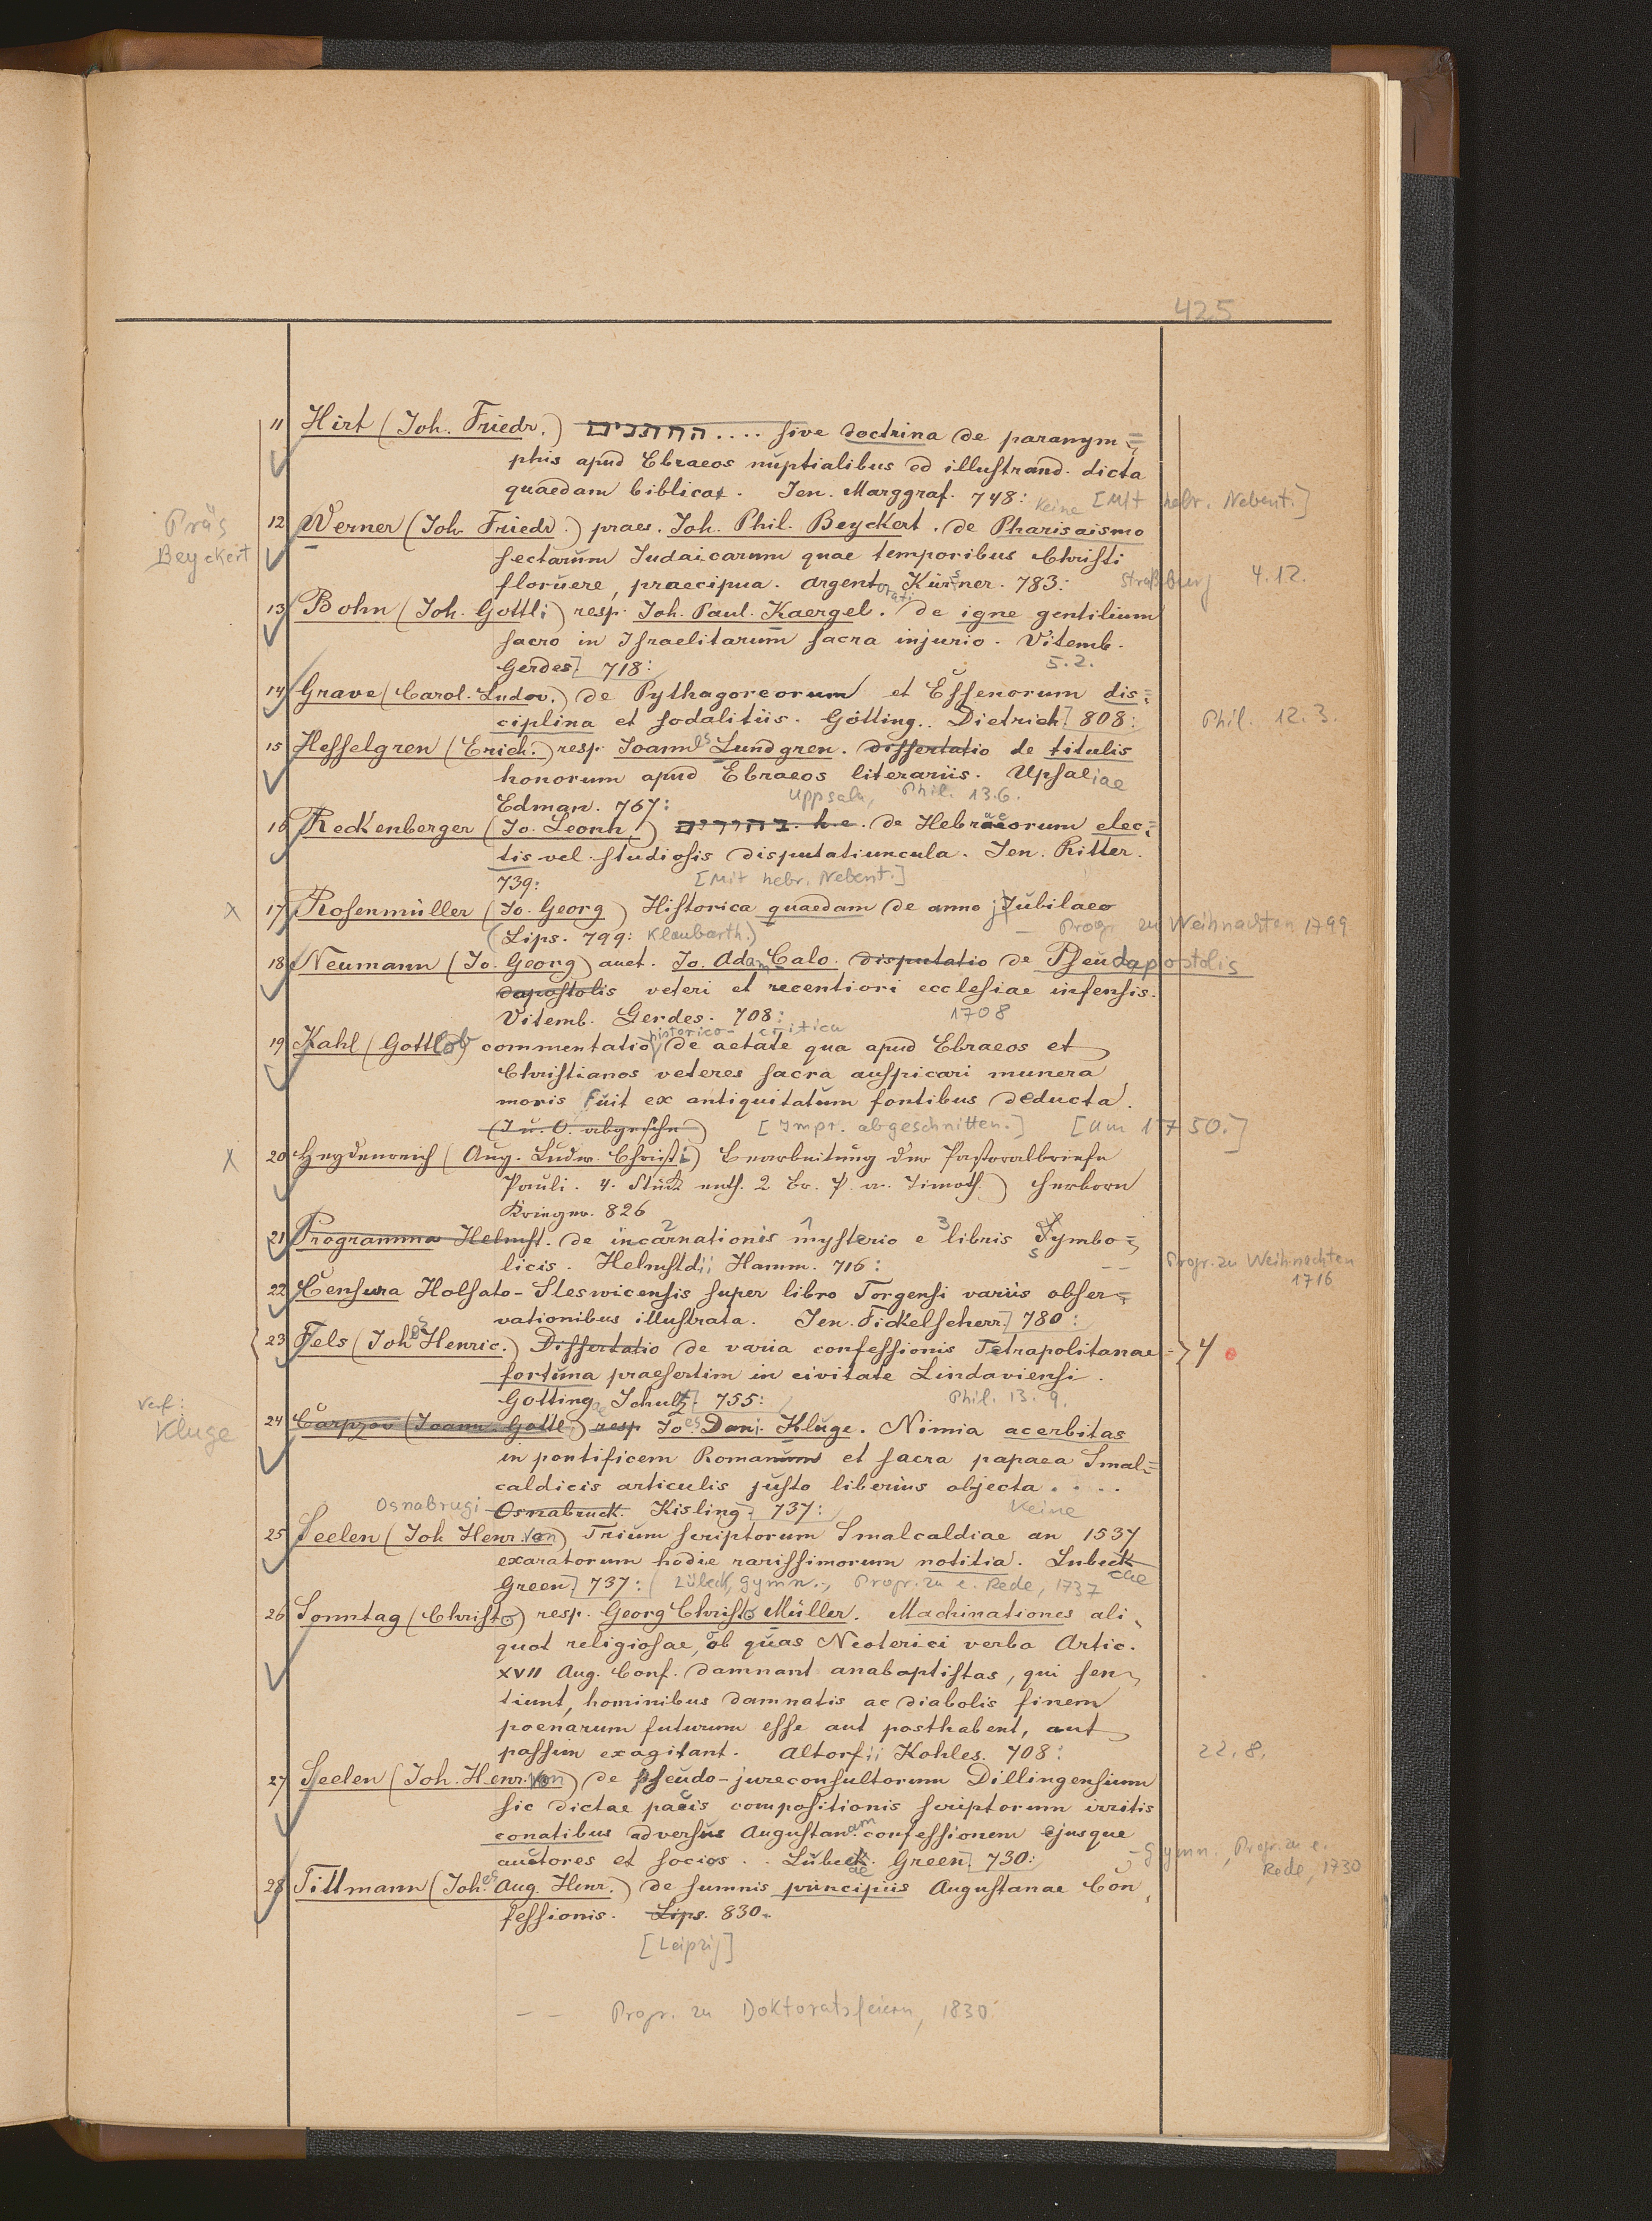 425
11 Hirt (Joh. Friedr.) .... sive doctrina de paranym=
phis apud Ebraeos nuptialibus ad illustrand. dicta
quaedam biblica. Jen. Marggraf. 748: Keine [Mit hebr. Nebent.]
Präs Beyckert
12 Werner (Joh. Friedr.) praes. Joh. Phil. Beyckert. de Pharisaismo
sectarum Judaicarum quae temporibus Christi
floruere, praecipua. Argentorati Kürsner. 783: Straßburg 4.12.
13 Bohn (Joh. Gottl:) resp. Joh. Paul. Kaergel. de igne gentilium
sacro in Israelitarum sacra injurio. Vitemb.
Gerdes] 718: 5.2.
14 Grave (Carol. Ludov.) de Pythagoreorum et Essenorum dis=
ciplina et sodalitiis. Götting.. Dietrich] 808: Phil. 12.3.
15 Hesselgren (Erich.) resp. Joannes Lundgren. dissertatio de titulis
honorum apud Ebraeos literariis. Upsaliae
Edman. 767: Uppsala, Phil. 13.6.
16 Reckenberger (Jo. Leonh.) h.e. de Hebraeorum elec=
tis vel studiosis disputatiuncula. Jen. Ritter.
739: [Mit hebr. Nebent.]
x 17 Rosenmüller (Jo. Georg) Historica quaedam de anno jubilaeo
(Lips. 799: Klaubarth.) – Progr. zu Weihnachten 1799
18 Neumann (Jo. Georg) auct. Jo. Adam Calo. disputatio de Pseudapostolis
dapostolis veteri et recentiori ecclesiae infensis.
Vitemb. Gerdes. 708: 1708
19 Kahl (Gottlob) commentatio historico-critica de aetate qua apud Ebraeos et
Christianos veteres sacra auspicari munera
moris fuit ex antiquitatum fontibus deducta.
[Impr. abgeschnitten.] [um 1750.]
x 20 Heydenreich (Aug. Ludw. Christi.) Bearbeitung der Pastoralbriefe
Pauli. 4. Stück enth. 2 Br. P. a. Timoth.) Herborn
Krieger. 826
21 Programma Helmst. de incarnationis 2 mysterio 1 e 3 libris Symbo=
licis. Helmstdii Hamm. 716: – – Progr. zu Weihnachten
1716
22 Censura Holsato-Sleswicensis super libro Torgensi variis obser=
vationibus illustrata. Jen. Fickelscherr] 780:
23 Fels (Johs Henric.) Dissertatio de varia confessionis Tetrapolitanae = } 4
fortuna praesertim in civitate Lindaviensi.
Gottingae Schultz] 755: Phil. 13.9.
Verf: Kluge
24 Carpzov (Joann. Gottl.) resp Joes Dan. Kluge. Nimia acerbitas
in pontificem Romanum et sacra papaea Smal=
caldicis articulis justo liberius objecta .....
Osnabrugi Osnabruck. Kisling] 737: Keine
25 Seelen (Joh Henr. von) Trium scriptorum Smalcaldiae an 1537
exaratorum hodie rarissimorum notitia. Lubeck cae
Green] 737: Lübeck, Gymn., Progr. zu e. Rede, 1737
26 Sonntag (Christo) resp. Georg Christo Müller. Machinationes ali
quot religiosae, ob quas Neoterici verba Artic.
XVII Aug. Conf. damnant anabaptistas, qui sen
tiunt, hominibus damnatis ac diabolis finem
poenarum futurum esse aut posthabent, aut
passim exagitant. Altorfii Kohles. 708: 22.8.
27 Seelen (Joh. Henr. von) de pseudo-jureconsultorum Dillingensium
sic dictae pacis compositionis scriptorum irritis
conatibus adversus Augustanam confessionem ejusque
auctores et socios. Lübecae. Green] 730: – Gymn., Progr. zu e.
Rede, 1730
28 Tittmann (Johes Aug. Henr.) de summis principiis Augustanae Con
fessionis. Lips. 830.
[Leipzig]
– – Progr. zu Doktoratsfeiern, 1830.